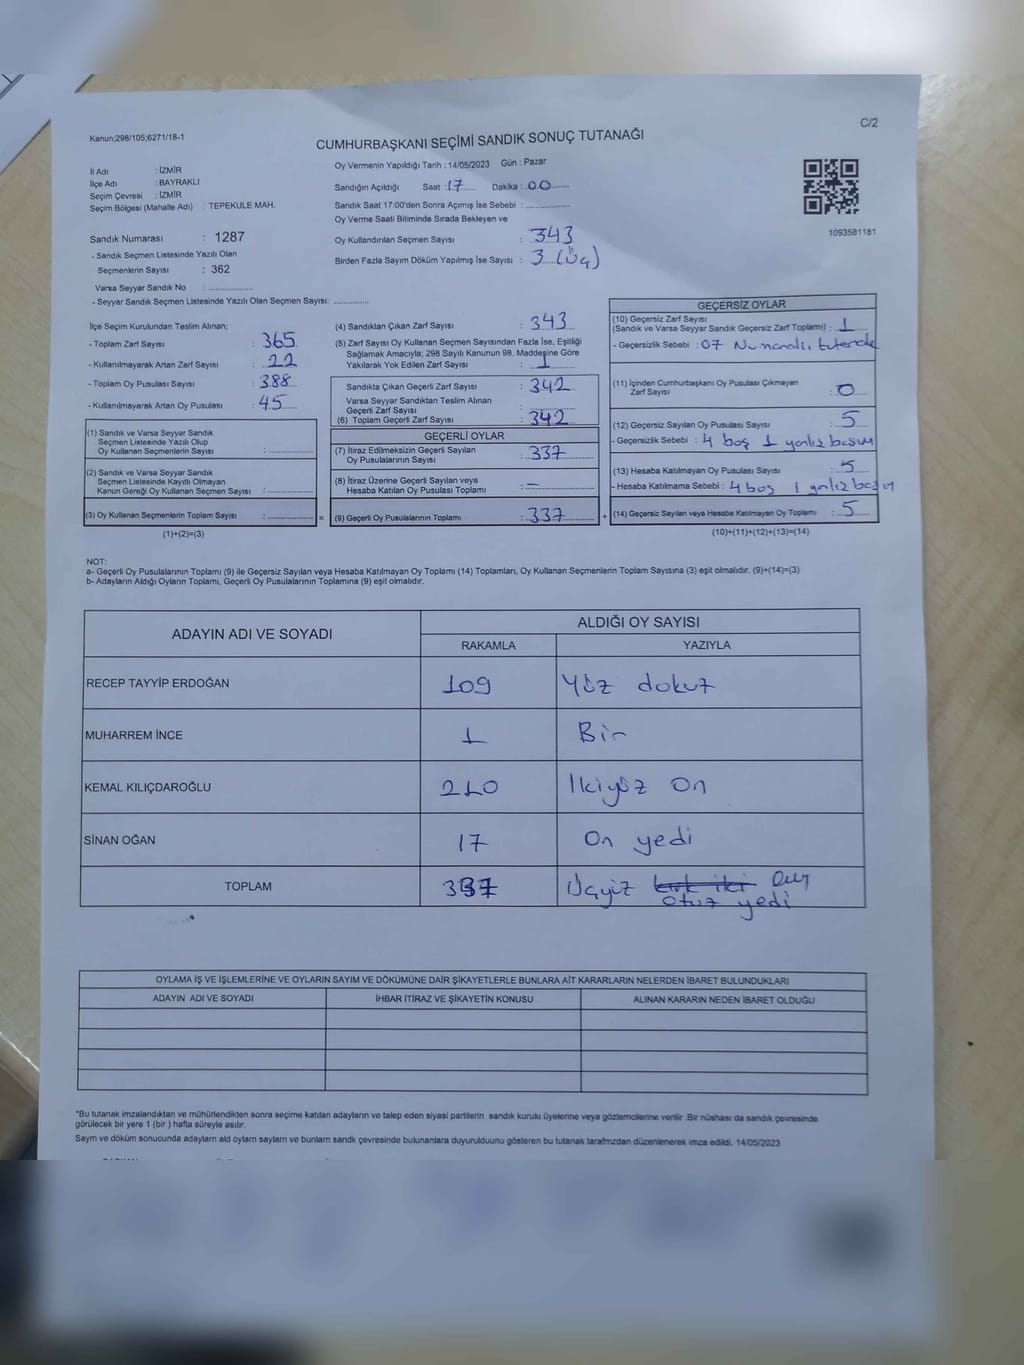 C/2
Kanun;298/105;6271/18-1
CUMHURBAŞKANI SEÇİMİ SANDIK SONUÇ TUTANAĞI
İl Adı : İZMİR
İlçe Adı : BAYRAKLI
Seçim Çevresi : İZMİR
Seçim Bölgesi (Mahalle Adı) : TEPEKULE MAH.
Sandık Numarası : 1287
- Sandık Seçmen Listesinde Yazılı Olan
Seçmenlerin Sayısı : 362
Varsa Seyyar Sandık No :
- Seyyar Sandık Seçmen Listesinde Yazılı Olan Seçmen Sayısı:
Oy Vermenin Yapıldığı Tarih : 14/05/2023 Gün : Pazar
Sandığın Açıldığı Saat : 17 Dakika : 00
Sandık Saat 17:00'den Sonra Açımış İse Sebebi :
Oy Verme Saati Bitiminde Sırada Bekleyen ve
Oy Kullandırılan Seçmen Sayısı : 343
Birden Fazla Sayım Döküm Yapılmış İse Sayısı : 3 (Üç)
1093581181
İlçe Seçim Kurulundan Teslim Alınan;
- Toplam Zarf Sayısı : 365
- Kullanılmayarak Artan Zarf Sayısı : 22
- Toplam Oy Pusulası Sayısı : 388
- Kullanılmayarak Artan Oy Pusulası : 45
(1) Sandık ve Varsa Seyyar Sandık
Seçmen Listesinde Yazılı Olup
Oy Kullanan Seçmenlerin Sayısı :
(2) Sandık ve Varsa Seyyar Sandık
Seçmen Listesinde Kayıtlı Olmayan
Kanun Gereği Oy Kullanan Seçmen Sayısı :
(3) Oy Kullanan Seçmenlerin Toplam Sayısı : =
(1)+(2)=(3)
(4) Sandıktan Çıkan Zarf Sayısı : 343
(5) Zarf Sayısı Oy Kullanan Seçmen Sayısından Fazla İse, Eşitliği
Sağlamak Amacıyla; 298 Sayılı Kanunun 98. Maddesine Göre
Yakılarak Yok Edilen Zarf Sayısı : 1
Sandıkta Çıkan Geçerli Zarf Sayısı : 342
Varsa Seyyar Sandıktan Teslim Alınan
Geçerli Zarf Sayısı :
(6) Toplam Geçerli Zarf Sayısı : 342
GEÇERLİ OYLAR
(7) İtiraz Edilmeksizin Geçerli Sayılan
Oy Pusulalarının Sayısı : 337
(8) İtiraz Üzerine Geçerli Sayılan veya
Hesaba Katılan Oy Pusulası Toplamı : -
(9) Geçerli Oy Pusulalarının Toplamı : 337 +
GEÇERSİZ OYLAR
(10) Geçersiz Zarf Sayısı
(Sandık ve Varsa Seyyar Sandık Geçersiz Zarf Toplamı) : 1
- Geçersizlik Sebebi : 07 Numaralı,
(11) İçinden Cumhurbaşkanı Oy Pusulası Çıkmayan
Zarf Sayısı : 0
(12) Geçersiz Sayılan Oy Pusulası Sayısı : 5
- Geçersizlik Sebebi : 4 boş 1 yanlız basım
(13) Hesaba Katılmayan Oy Pusulası Sayısı : 5
- Hesaba Katılmama Sebebi : 4 boş 1 yanlız basım
(14) Geçersiz Sayılan veya Hesaba Katılmayan Oy Toplamı : 5
(10)+(11)+(12)+(13)=(14)
NOT:
a- Geçerli Oy Pusulalarının Toplamı (9) ile Geçersiz Sayılan veya Hesaba Katılmayan Oy Toplamı (14) Toplamları, Oy Kullanan Seçmenlerin Toplam Sayısına (3) eşit olmalıdır. (9)+(14)=(3)
b- Adayların Aldığı Oyların Toplamı, Geçerli Oy Pusulalarının Toplamına (9) eşit olmalıdır.
ADAYIN ADI VE SOYADI ALDIĞI OY SAYISI
RAKAMLA YAZIYLA
RECEP TAYYİP ERDOĞAN 109 Yüz dokuz
MUHARREM İNCE 1 Bir
KEMAL KILIÇDAROĞLU 210 İkiyüz On
SİNAN OĞAN 17 On yedi
TOPLAM 337 Üçyüz kırk iki
otuz yedi
OYLAMA İŞ VE İŞLEMLERİNE VE OYLARIN SAYIM VE DÖKÜMÜNE DAİR ŞİKAYETLERLE BUNLARA AİT KARARLARIN NELERDEN İBARET BULUNDUKLARI
ADAYIN ADI VE SOYADI İHBAR İTİRAZ VE ŞİKAYETİN KONUSU ALINAN KARARIN NEDEN İBARET OLDUĞU
*Bu tutanak imzalandıktan ve mühürlendikten sonra seçime katılan adayların ve talep eden siyasi partilerin sandık kurulu üyelerine veya gözlemcilerine verilir. Bir nüshası da sandık çevresinde
görülecek bir yere 1 (bir ) hafta süreyle asılır.
Sayım ve döküm sonucunda adayların ald oyların sayların ve bunların sandk çevresinde bulunanlara duyurulduunu gösteren bu tutanak tarafmzdan düzenlenerek imza edildi. 14/05/2023